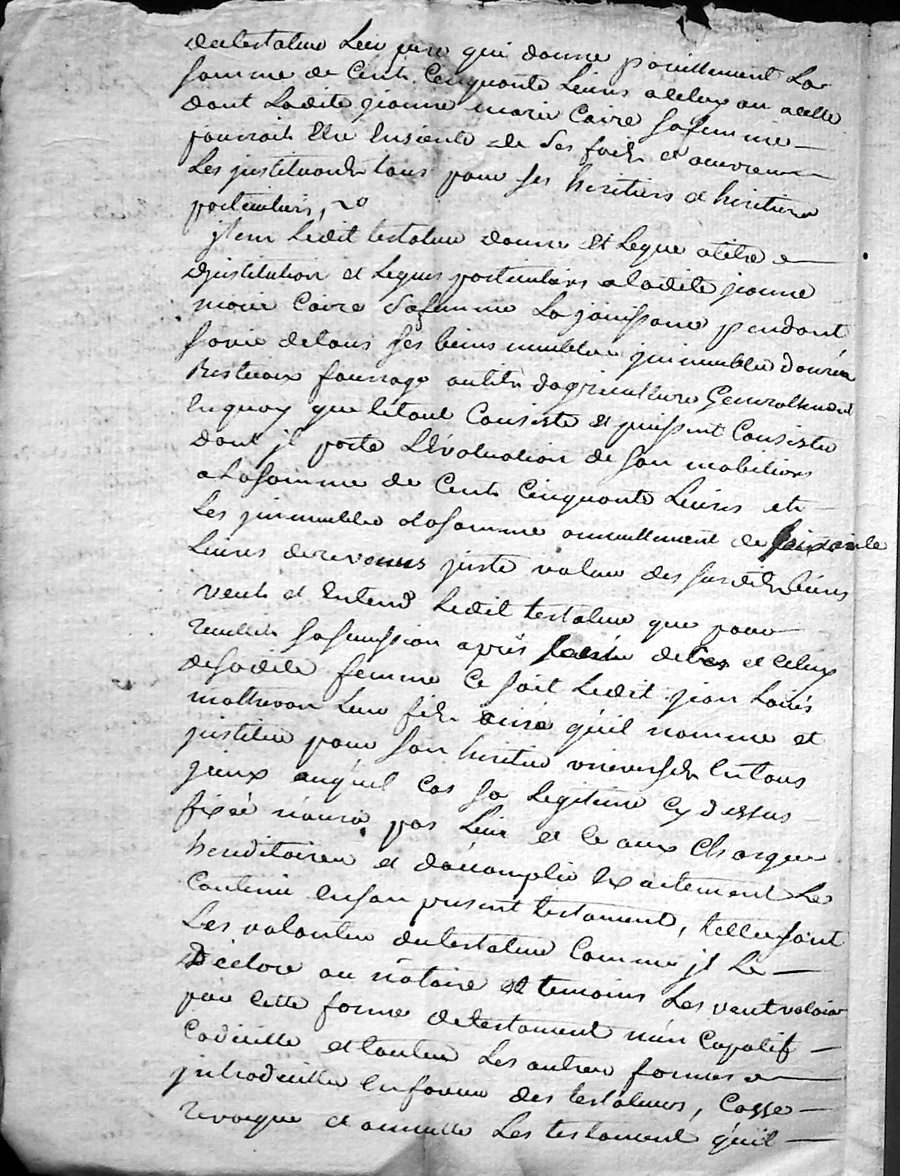 du testateur Leur pere qui donne pareillement La
somme de Cent Cinquante Livres a celuy ou a celle
dont Ladite jeanne marie Caire sa femme
pourroit Etre Ensiente de ses faits et oeuvres
Les jnstituants tous pour ses heritiers et heritieres
particuliers,
jtem Ledit testateur donne et Legue a titre
djnstitution et Legues particuliers a ladite jeanne
marie Caire Sa femme La jouissance pendant
sa vie de tous ses biens meubles jmmeubles danrées
Bestiaux fourrage outils dagriculture Generallement
En quoy que le tout Consiste et puissent Consister
dont jl porte L'Evaluation de son mobiliers
a La somme de Cent Cinquante Livres et
Les jmmeubles a la somme annuellement de soixante
Livres de revenus juste valeur des susdits biens
veut et Entend Ledit testateur que pour
recueillir sa sucession après deces et celuy
de sadite femme Ce soit Ledit jean Louis
matheron Leur fils ainé qu'il nomme et
jnstitue pour son heritier universel En tous
yceux auquel Cas sa Legitime cy dessus
fixée n'aura pas Lieu et ce aux Charges
hereditaires et d'accomplir Exactement Le
Contenu en son present testament, telles sont
Les volontes du testateur Comme jl Le
Déclare au notaire et temoins Les veut valoir
par Cette forme de testament nuncupatif
Codicille et toutes Les autres formes
jntroduittes En faveur des testateurs, Casse
revoque et annulle Les testament qu'il